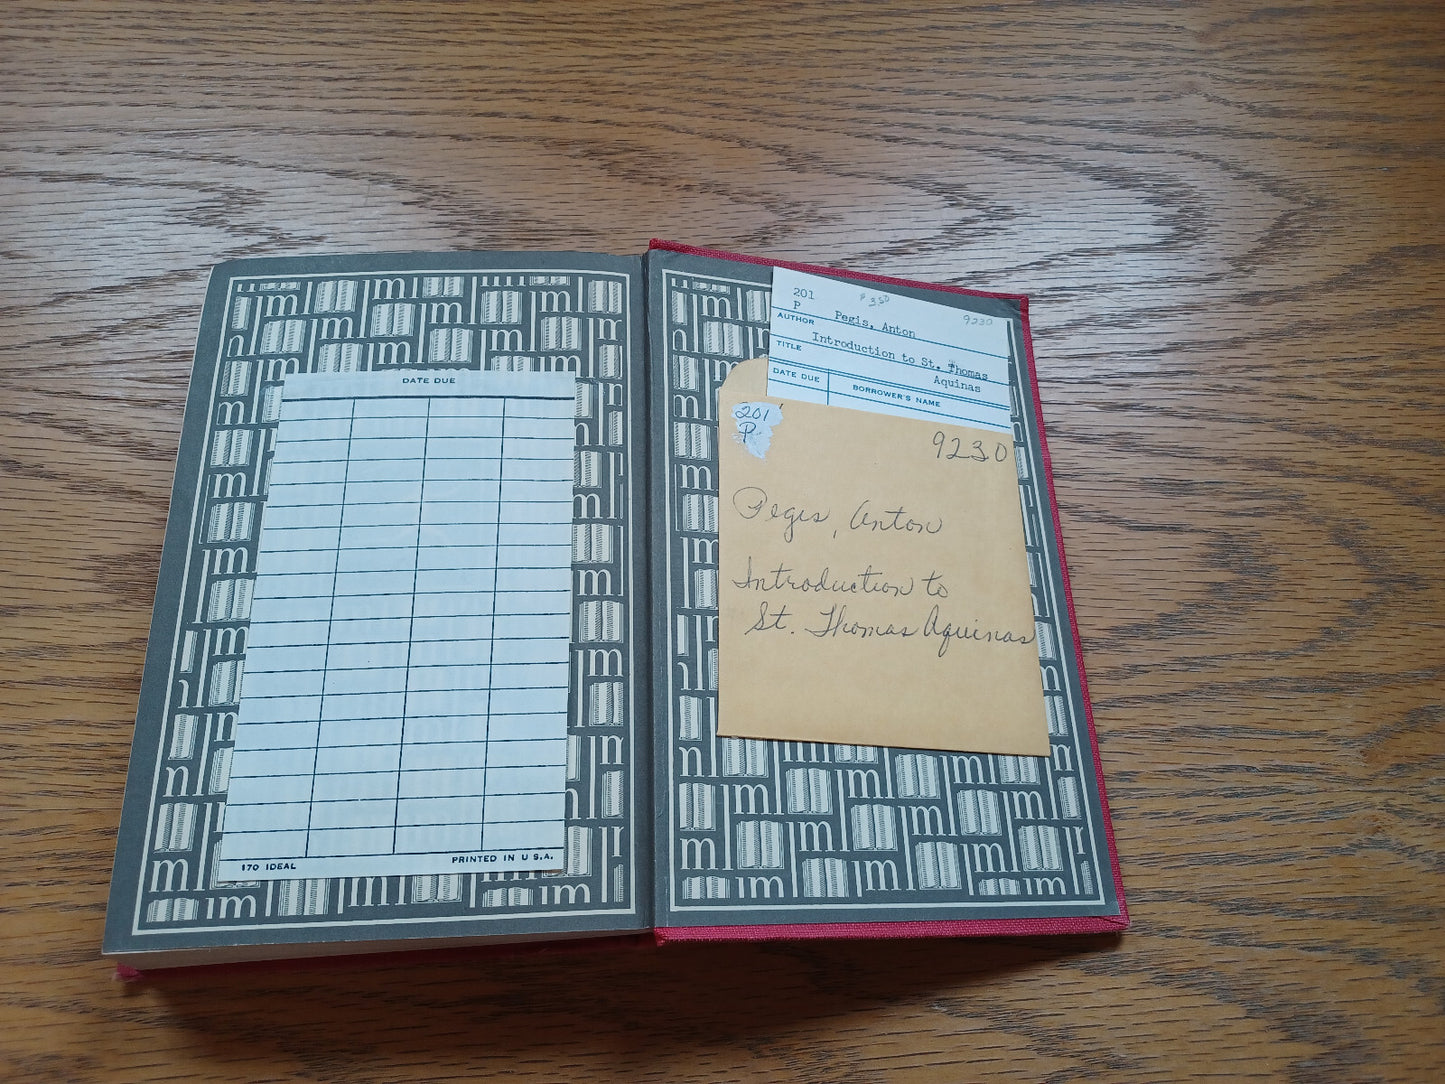 DATE DUE
170 IDEAL
PRINTED IN U S.A.
201 P 3 50 9230
P
AUTHOR Pegis, Anton
TITLE Introduction to St. Thomas
Aquinas
DATE DUE BORROWER'S NAME
201
P
9230
Pegis, Anton
Introduction to
St. Thomas Aquinas